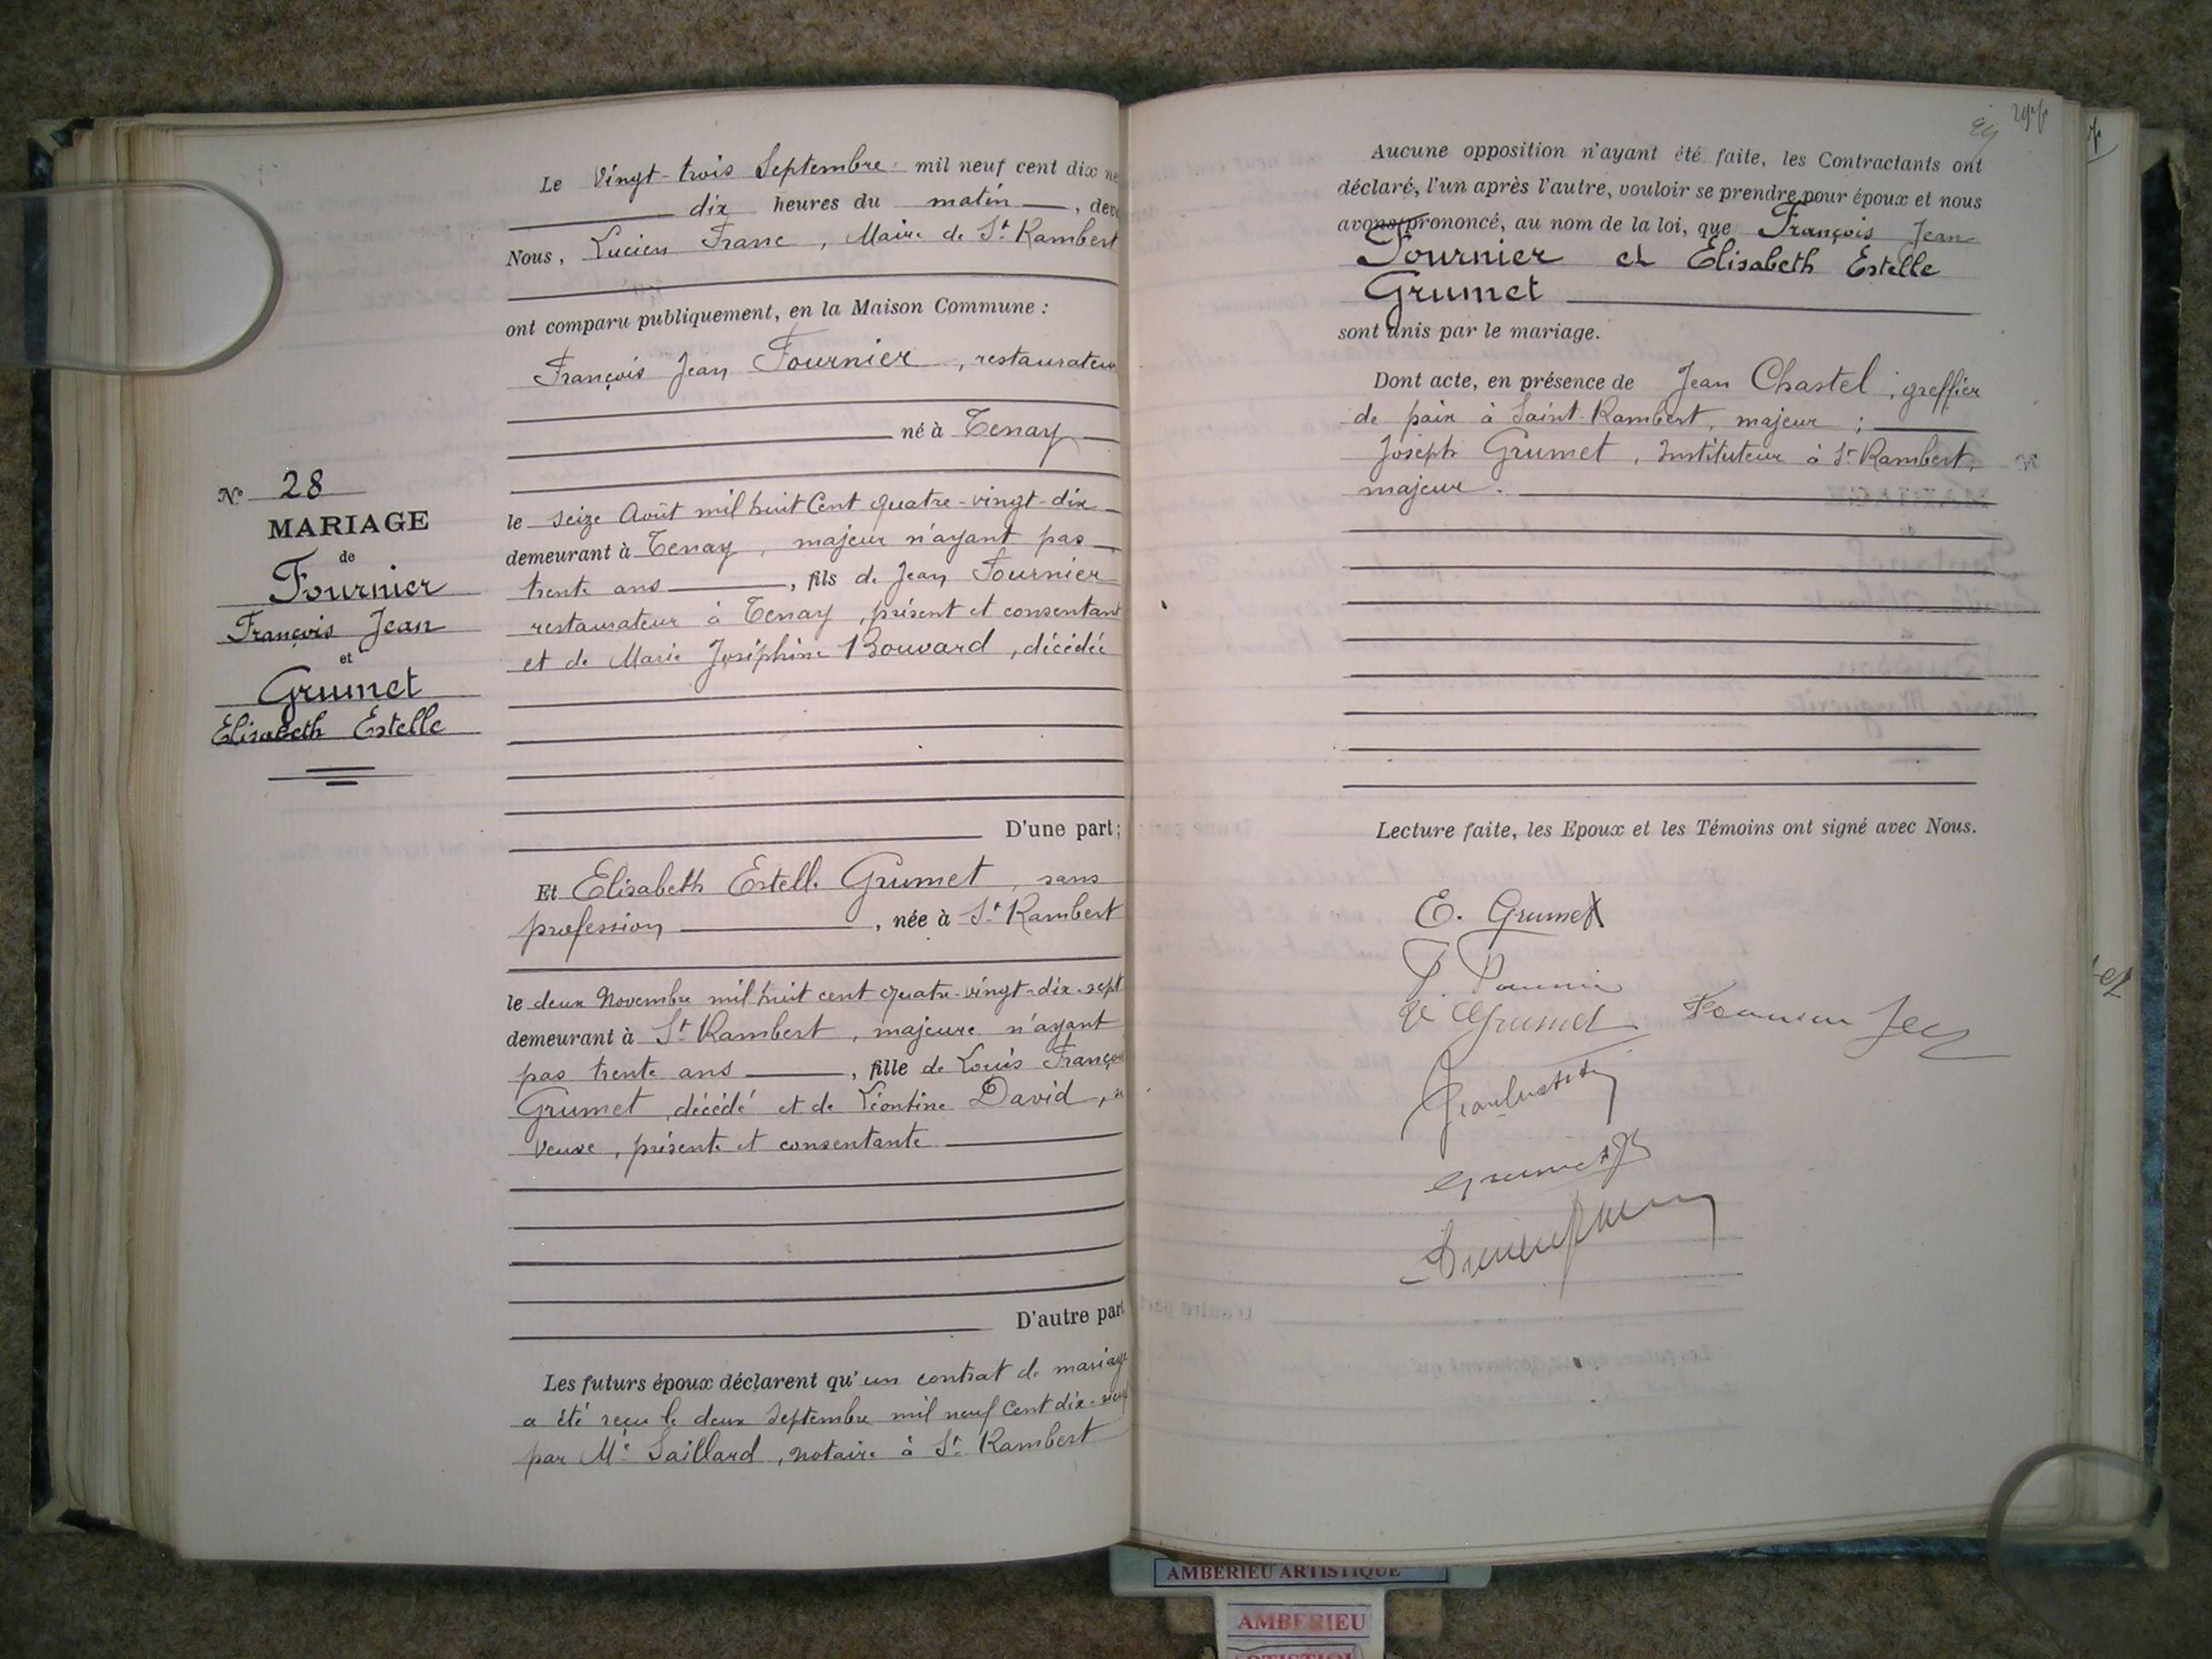 Le Vingt-trois Septembre mil neuf cent dix ne
dix heures du matin, dev
Nous, Lucien Franc, Maire de St Rambert
ont comparu publiquement, en la Maison Commune :
François Jean Fournier, restaurateur
né à Tenay
le seize Août mil huit Cent quatre-vingt-dix
demeurant à Tenay, majeur n'ayant pas
trente ans, fils de Jean Fournier
restaurateur à Tenay, présent et consentant
et de Marie Joséphine Bouvard, décédée
D'une part;
Et Elisabeth Estelle Grumet, sans
profession, née à St Rambert
le deux Novembre mil huit cent quatre-vingt-dix-sept
demeurant à St Rambert, majeure n'ayant
pas trente ans, fille de Louis François
Grumet, décédé et de Léontine David, sa
veuve, présente et consentante
D'autre part
Les futurs époux déclarent qu'un contrat de mariage
a été reçu le deux Septembre mil neuf Cent dix-neuf
par Me Saillard, notaire à St Rambert
No 28
MARIAGE
de
Fournier
François Jean
et
Grumet
Elisabeth Estelle
Aucune opposition n'ayant été faite, les Contractants ont
déclaré, l'un après l'autre, vouloir se prendre pour époux et nous
avons prononcé, au nom de la loi, que François Jean
Fournier et Elisabeth Estelle
Grumet
sont unis par le mariage.
Dont acte, en présence de Jean Chastel, greffier
de paix à Saint-Rambert, majeur ;
Joseph Grumet, Instituteur à St Rambert,
majeur.
Lecture faite, les Epoux et les Témoins ont signé avec Nous.
E. Grumet
Ve Grumet
Grumet
AMBERIEU ARTISTIQUE
AMBERIEU